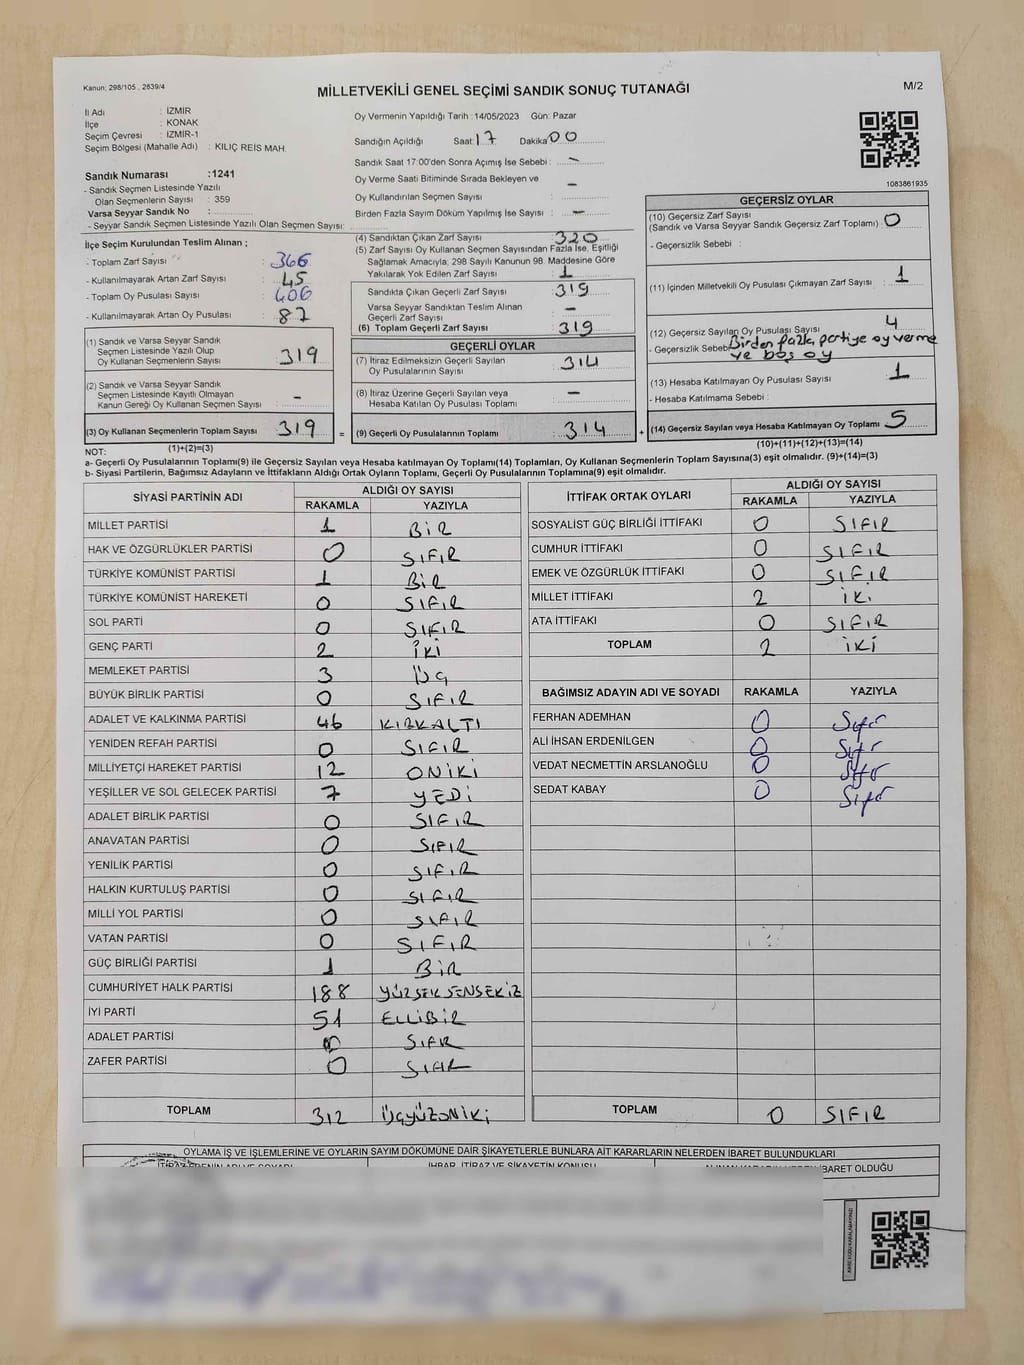 Kanun: 298/105 , 2839/4
MİLLETVEKİLİ GENEL SEÇİMİ SANDIK SONUÇ TUTANAĞI
M/2
İl Adı : İZMİR
İlçe : KONAK
Seçim Çevresi : İZMİR-1
Seçim Bölgesi (Mahalle Adı) : KILIÇ REİS MAH.
Sandık Numarası :1241
- Sandık Seçmen Listesinde Yazılı
Olan Seçmenlerin Sayısı : 359
Varsa Seyyar Sandık No :
- Seyyar Sandık Seçmen Listesinde Yazılı Olan Seçmen Sayısı:
Oy Vermenin Yapıldığı Tarih :14/05/2023 Gün: Pazar
Sandığın Açıldığı Saat 17 Dakika 00
Sandık Saat 17:00'den Sonra Açımış İse Sebebi : -
Oy Verme Saati Bitiminde Sırada Bekleyen ve
Oy Kullandırılan Seçmen Sayısı -
Birden Fazla Sayım Döküm Yapılmış İse Sayısı -
1083861935
İlçe Seçim Kurulundan Teslim Alınan ;
- Toplam Zarf Sayısı : 366
- Kullanılmayarak Artan Zarf Sayısı : 45
- Toplam Oy Pusulası Sayısı : 406
- Kullanılmayarak Artan Oy Pusulası : 87
(1) Sandık ve Varsa Seyyar Sandık
Seçmen Listesinde Yazılı Olup
Oy Kullanan Seçmenlerin Sayısı 319
(2) Sandık ve Varsa Seyyar Sandık
Seçmen Listesinde Kayıtlı Olmayan
Kanun Gereği Oy Kullanan Seçmen Sayısı -
(3) Oy Kullanan Seçmenlerin Toplam Sayısı 319 =
(1)+(2)=(3)
(4) Sandıktan Çıkan Zarf Sayısı 320
(5) Zarf Sayısı Oy Kullanan Seçmen Sayısından Fazla İse, Eşitliği
Sağlamak Amacıyla; 298 Sayılı Kanunun 98. Maddesine Göre
Yakılarak Yok Edilen Zarf Sayısı : 1
Sandıkta Çıkan Geçerli Zarf Sayısı : 319
Varsa Seyyar Sandıktan Teslim Alınan
Geçerli Zarf Sayısı -
(6) Toplam Geçerli Zarf Sayısı : 319
GEÇERLİ OYLAR
(7) İtiraz Edilmeksizin Geçerli Sayılan
Oy Pusulalarının Sayısı : 314
(8) İtiraz Üzerine Geçerli Sayılan veya
Hesaba Katılan Oy Pusulası Toplamı : -
(9) Geçerli Oy Pusulalarının Toplamı : 314 +
GEÇERSİZ OYLAR
(10) Geçersiz Zarf Sayısı
(Sandık ve Varsa Seyyar Sandık Geçersiz Zarf Toplamı) 0
- Geçersizlik Sebebi :
(11) İçinden Milletvekili Oy Pusulası Çıkmayan Zarf Sayısı 1
(12) Geçersiz Sayılan Oy Pusulası Sayısı 4
- Geçersizlik Sebebi Birden fazla partiye oy verme
ve boş oy
(13) Hesaba Katılmayan Oy Pusulası Sayısı 1
- Hesaba Katılmama Sebebi :
(14) Geçersiz Sayılan veya Hesaba Katılmayan Oy Toplamı 5
(10)+(11)+(12)+(13)=(14)
NOT:
a- Geçerli Oy Pusulalarının Toplamı(9) ile Geçersiz Sayılan veya Hesaba katılmayan Oy Toplamı(14) Toplamları, Oy Kullanan Seçmenlerin Toplam Sayısına(3) eşit olmalıdır. (9)+(14)=(3)
b- Siyasi Partilerin, Bağımsız Adayların ve İttifakların Aldığı Ortak Oyların Toplamı, Geçerli Oy Pusulalarının Toplamına(9) eşit olmalıdır.
SİYASİ PARTİNİN ADI ALDIĞI OY SAYISI
RAKAMLA YAZIYLA
MİLLET PARTİSİ 1 BİR
HAK VE ÖZGÜRLÜKLER PARTİSİ 0 SIFIR
TÜRKİYE KOMÜNİST PARTİSİ 1 BİR
TÜRKİYE KOMÜNİST HAREKETİ 0 SIFIR
SOL PARTİ 0 SIFIR
GENÇ PARTİ 2 İKİ
MEMLEKET PARTİSİ 3 ÜÇ
BÜYÜK BİRLİK PARTİSİ 0 SIFIR
ADALET VE KALKINMA PARTİSİ 46 KIRKALTI
YENİDEN REFAH PARTİSİ 0 SIFIR
MİLLİYETÇİ HAREKET PARTİSİ 12 ONİKİ
YEŞİLLER VE SOL GELECEK PARTİSİ 7 YEDİ
ADALET BİRLİK PARTİSİ 0 SIFIR
ANAVATAN PARTİSİ 0 SIFIR
YENİLİK PARTİSİ 0 SIFIR
HALKIN KURTULUŞ PARTİSİ 0 SIFIR
MİLLİ YOL PARTİSİ 0 SIFIR
VATAN PARTİSİ 0 SIFIR
GÜÇ BİRLİĞİ PARTİSİ 1 BİR
CUMHURİYET HALK PARTİSİ 188 YÜZSEKSENSEKİZ
İYİ PARTİ 51 ELLİBİR
ADALET PARTİSİ 0 SIFIR
ZAFER PARTİSİ 0 SIFIR
TOPLAM 312 ÜÇYÜZONİKİ
İTTİFAK ORTAK OYLARI ALDIĞI OY SAYISI
RAKAMLA YAZIYLA
SOSYALİST GÜÇ BİRLİĞİ İTTİFAKI 0 SIFIR
CUMHUR İTTİFAKI 0 SIFIR
EMEK VE ÖZGÜRLÜK İTTİFAKI 0 SIFIR
MİLLET İTTİFAKI 2 İKİ
ATA İTTİFAKI 0 SIFIR
TOPLAM 2 İKİ
BAĞIMSIZ ADAYIN ADI VE SOYADI RAKAMLA YAZIYLA
FERHAN ADEMHAN 0 Sıfır
ALİ İHSAN ERDENİLGEN 0 Sıfır
VEDAT NECMETTİN ARSLANOĞLU 0 Sıfır
SEDAT KABAY 0 Sıfır
TOPLAM 0 SIFIR
OYLAMA İŞ VE İŞLEMLERİNE VE OYLARIN SAYIM DÖKÜMÜNE DAİR ŞİKAYETLERLE BUNLARA AİT KARARLARIN NELERDEN İBARET BULUNDUKLARI
İHBAR, İTİRAZ VE ŞİKAYETİN KONUSU
İBARET OLDUĞU